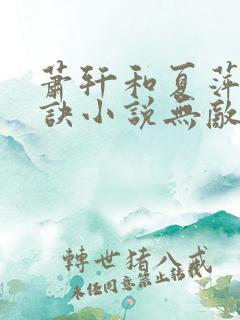 蕭軒和夏萍
訣小說無敵
轉世豬八戒
未经同意禁止转载